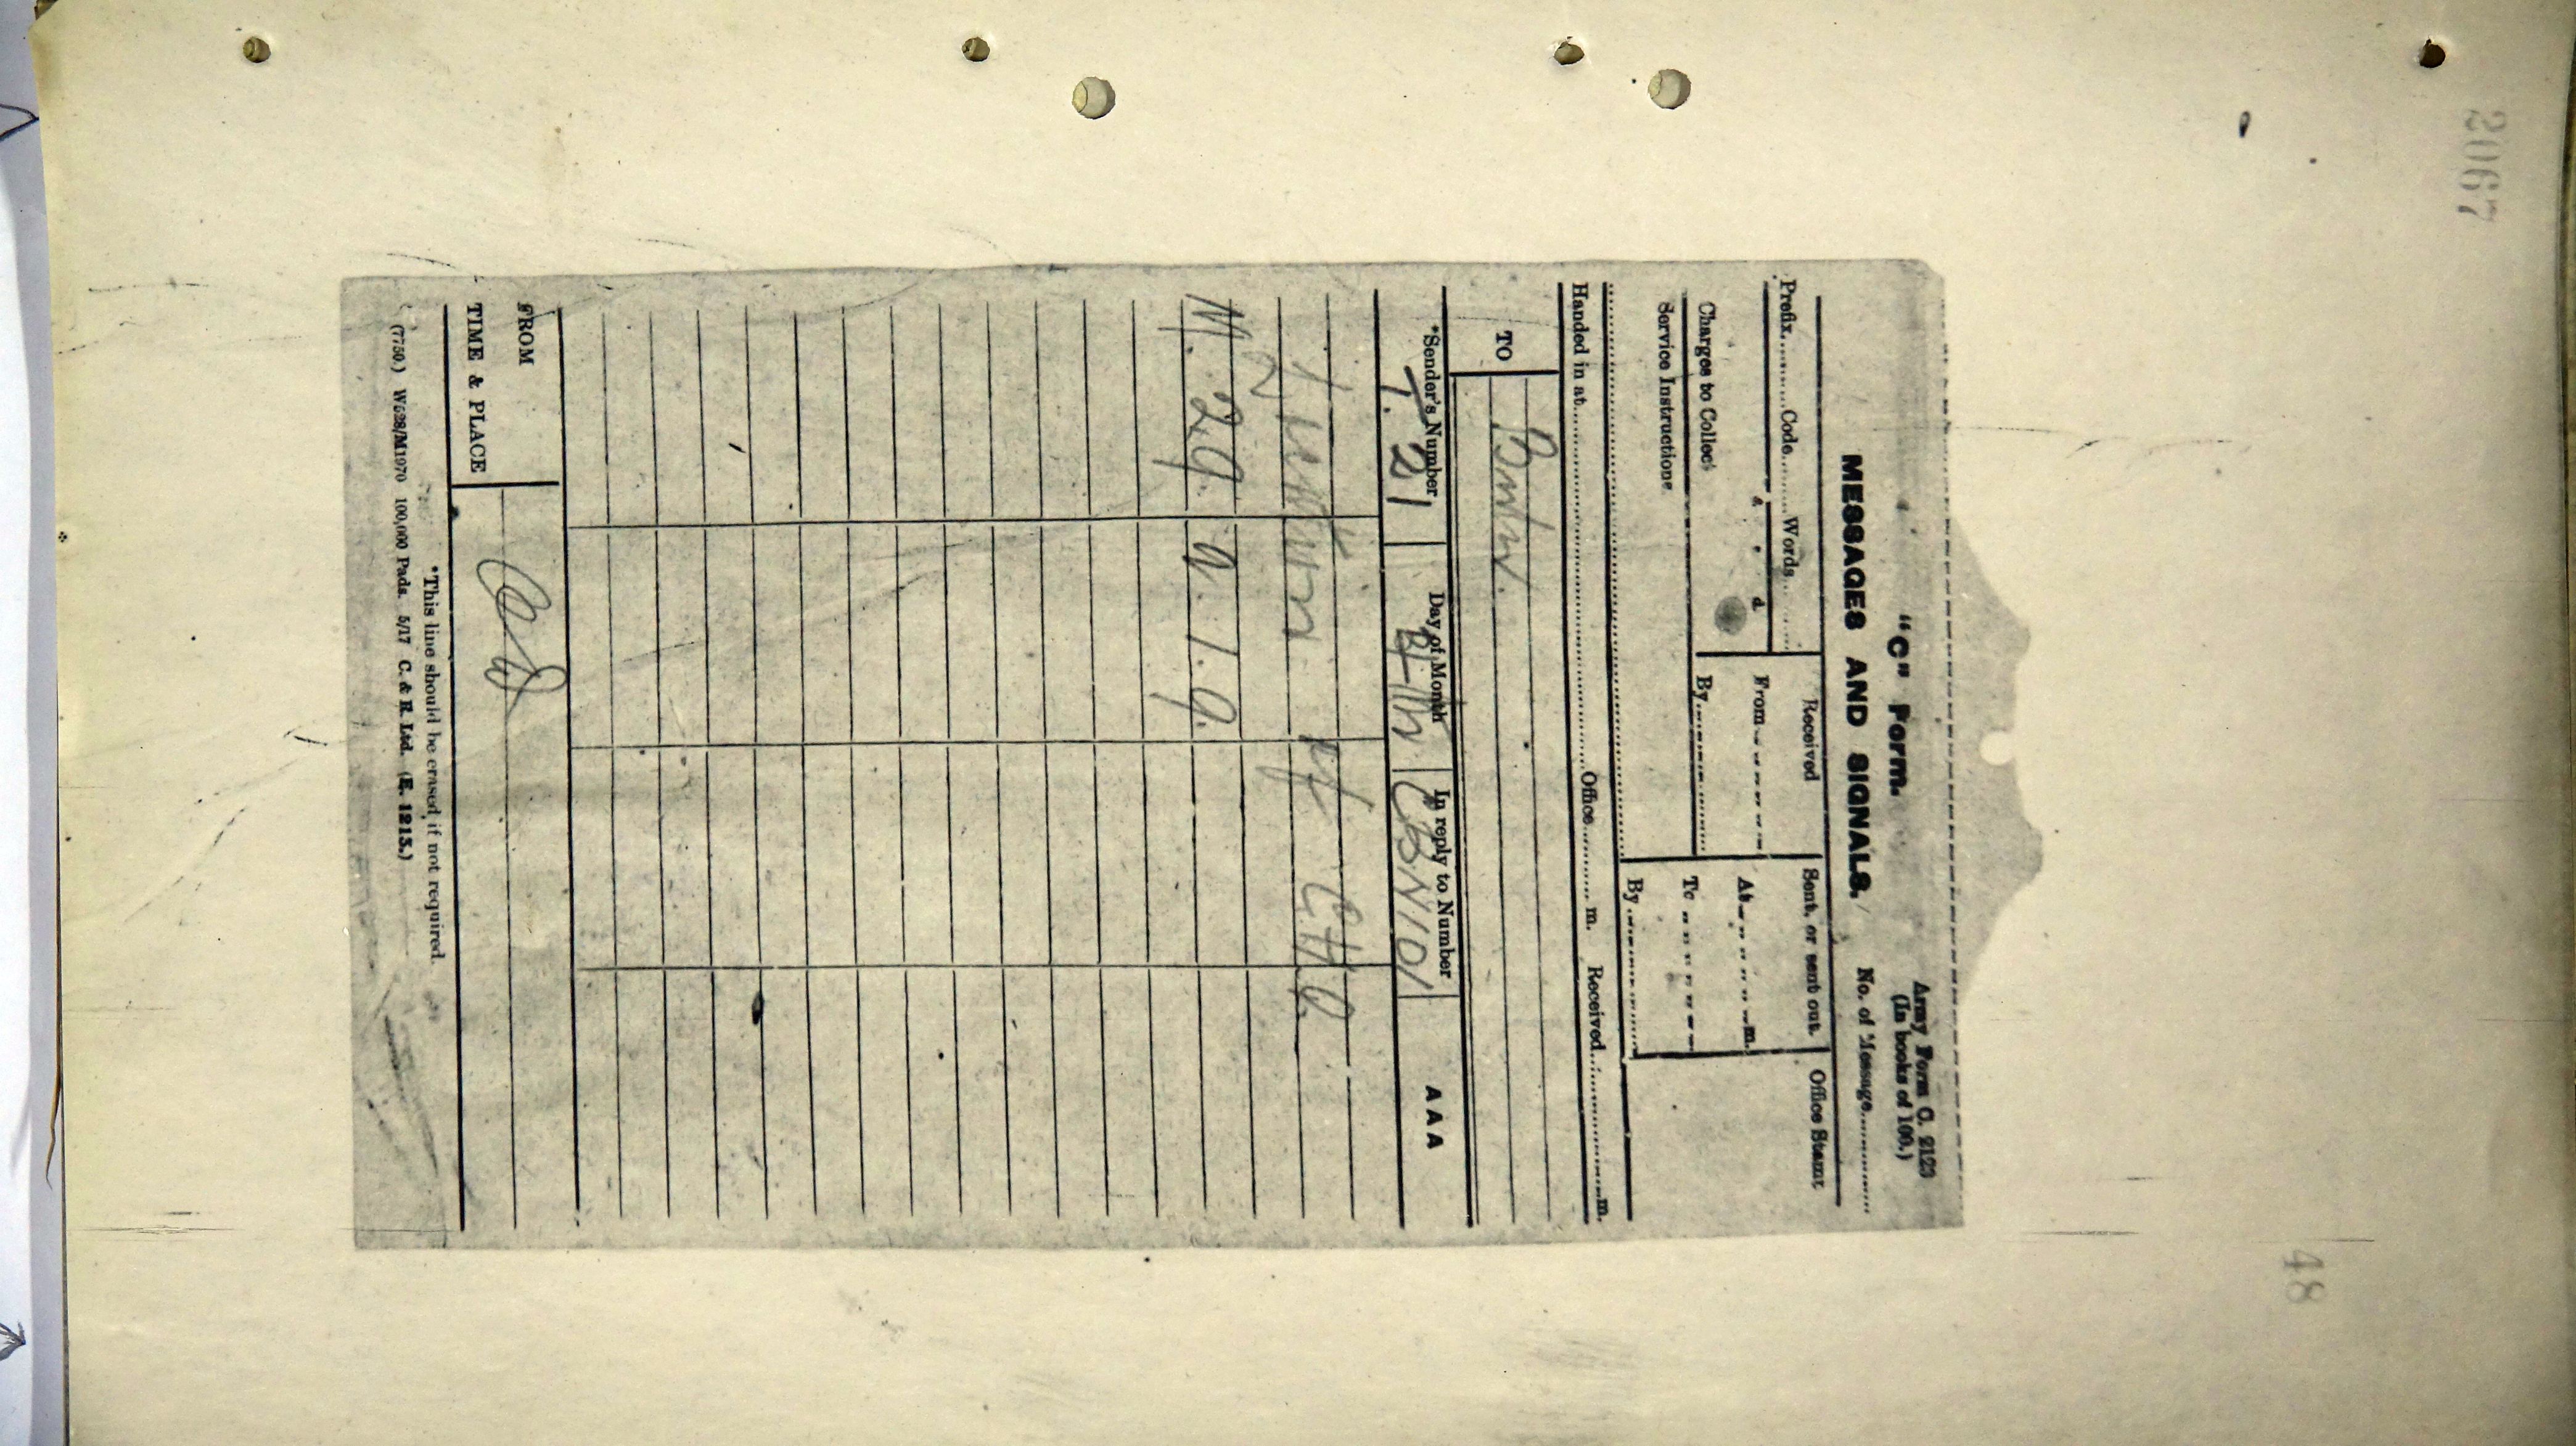 2067
48
"C" Form.
Army Form C. 2123
(In books of 100.)
MESSAGES AND SIGNALS.
No. of Message
Prefix Code Words
Received
Sent, or sent out.
Office Stamp
£ s. d.
From
At m.
Charges to Collect
By
To
Service Instructions
By
Handed in at Office m. Received m.
TO
*Sender's Number
Day of Month
In reply to Number
AAA
T. 21
4th
BN101
H.Q.
M. 29. a. 1. 9.
FROM
TIME & PLACE
*This line should be erased if not required.
(7750.) W528/M1970 100,000 Pads. 5/17 C. & R. Ltd. (E. 1213.)